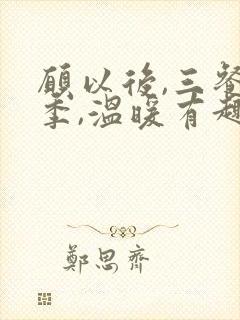 願以後,三餐
季,溫暖有趣
鄭思齊